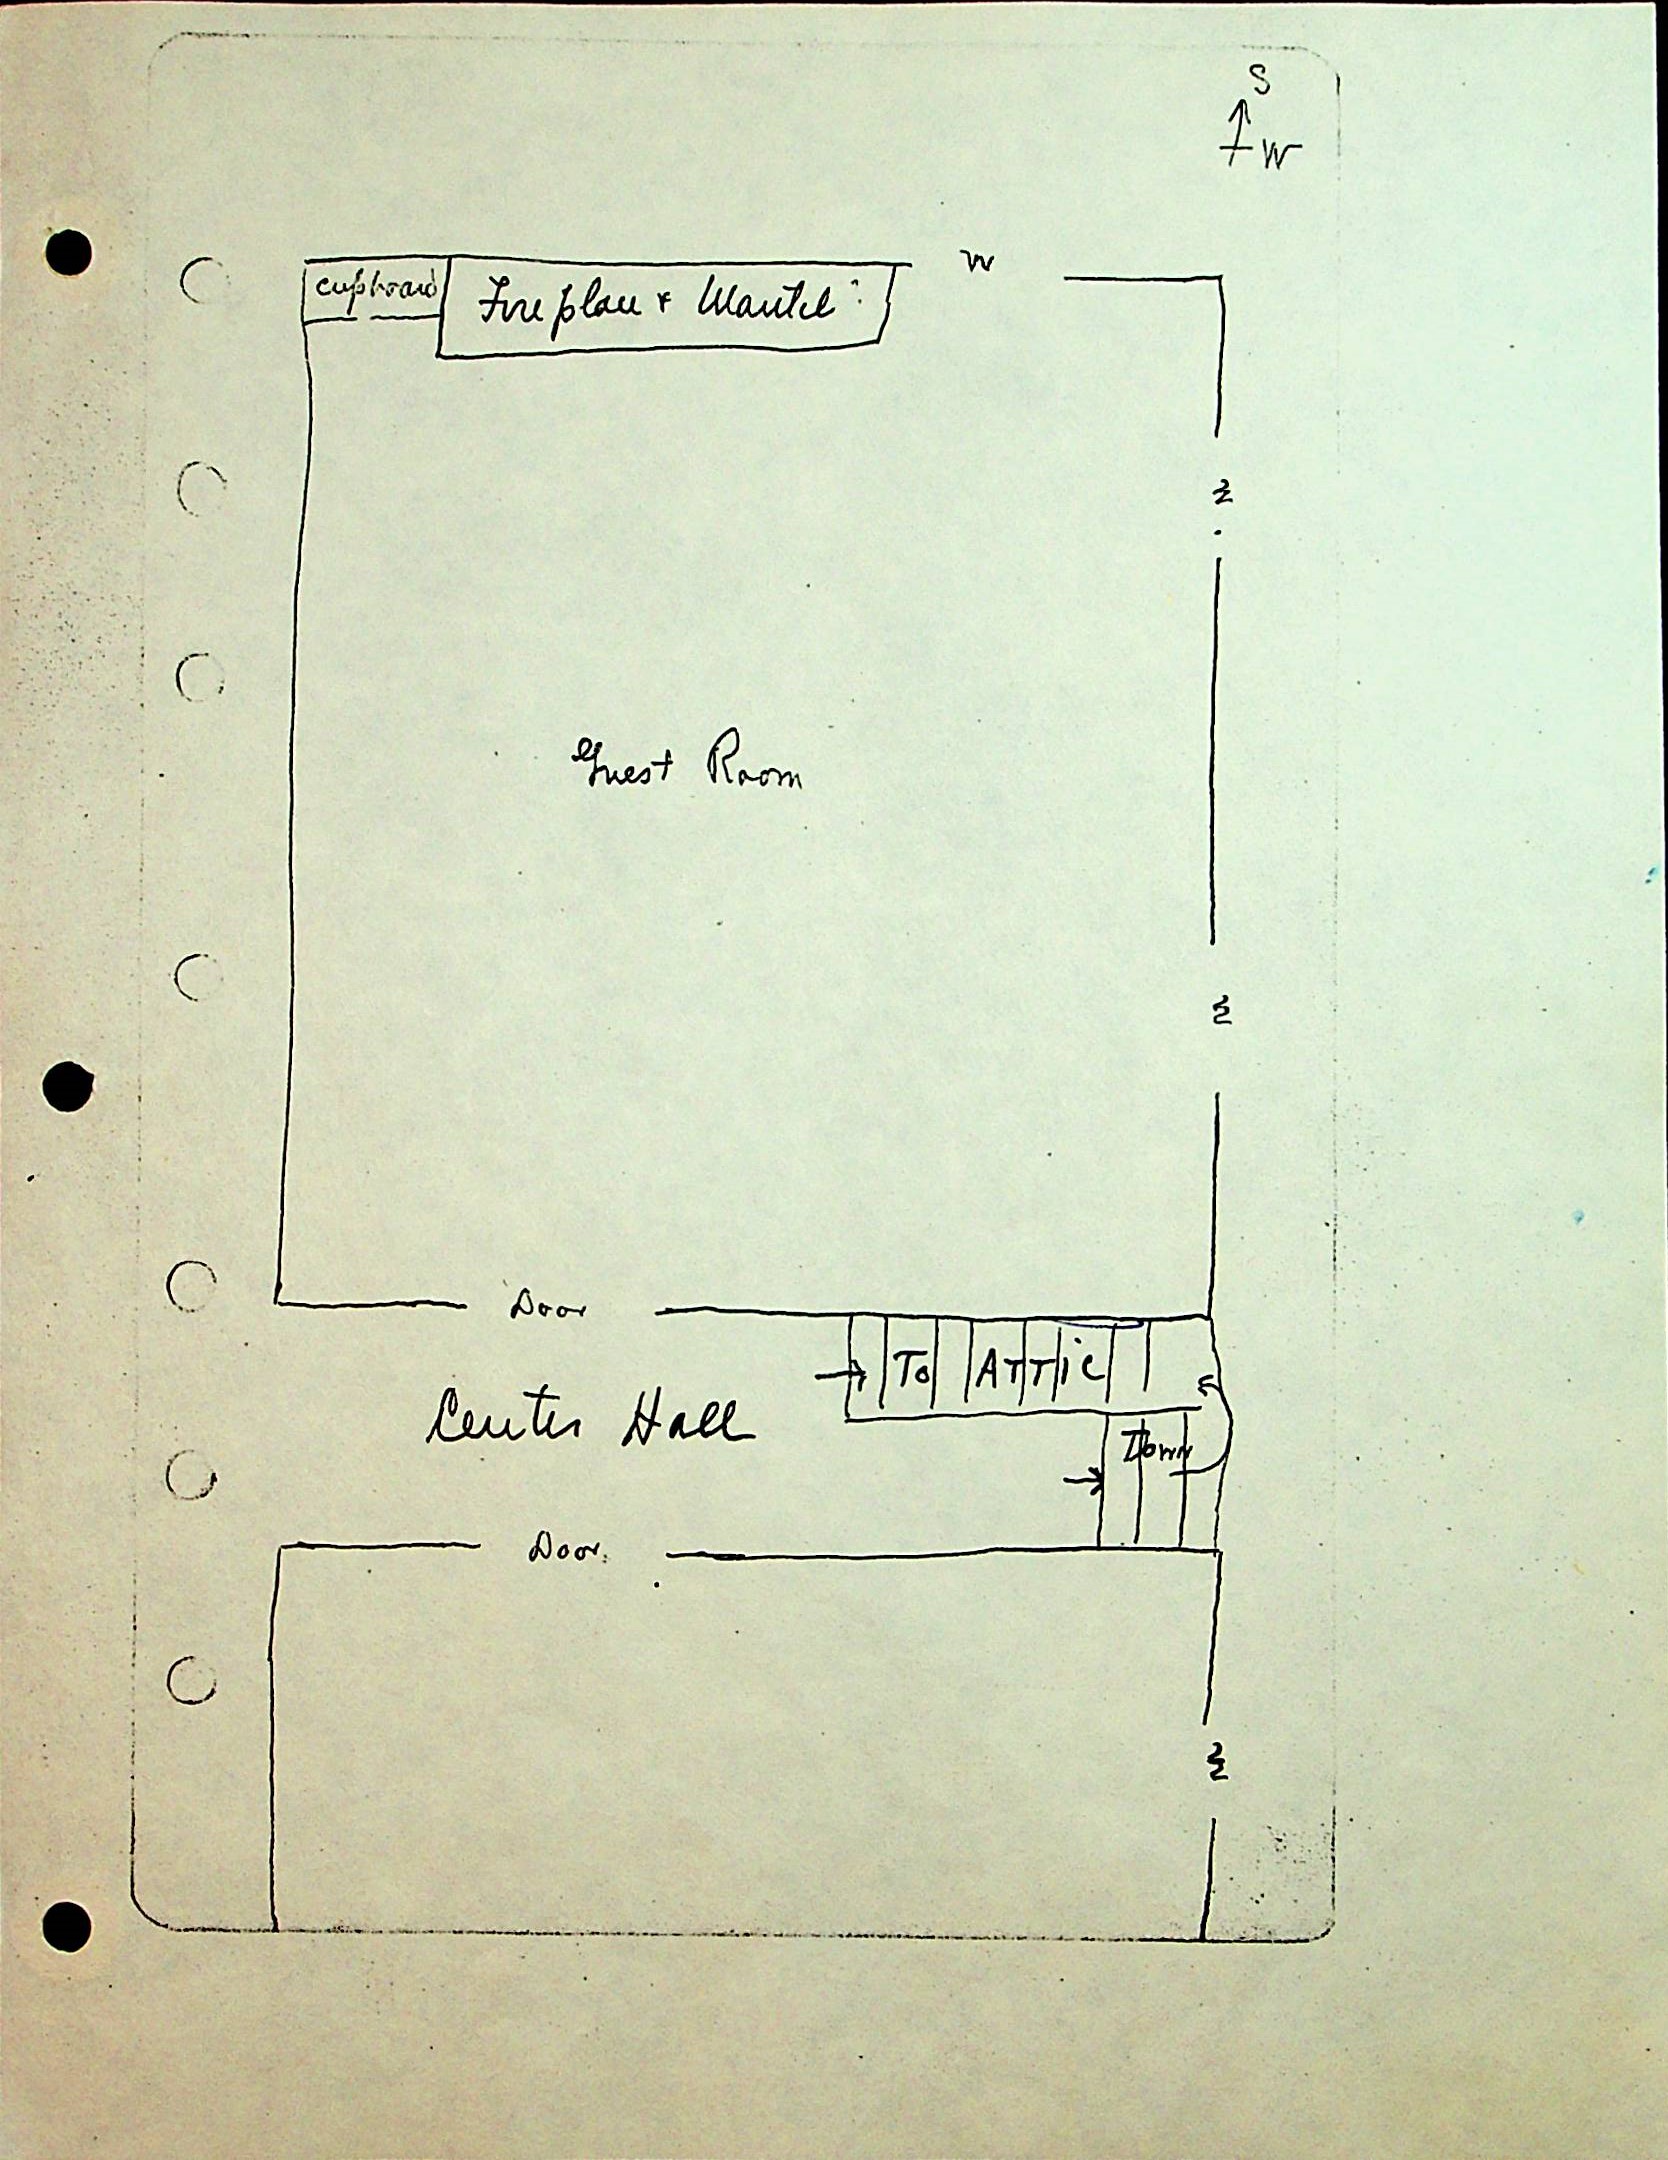 S
W
W
cupboard
Fireplace & Mantel
W
Guest Room
W
Door
To Attic
Center Hall
Down
Door
W